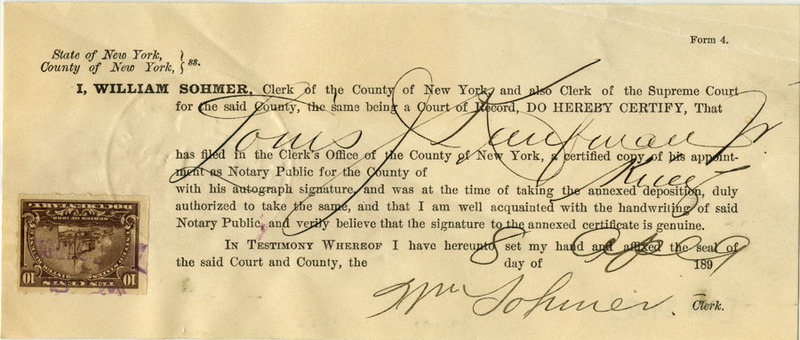 Form 4.
State of New York,
County of New York, } ss.
I, WILLIAM SOHMER, Clerk of the County of New York, and also Clerk of the Supreme Court
for the said County, the same being a Court of Record, DO HEREBY CERTIFY, That
Louis J
has filed in the Clerk's Office of the County of New York, a certified copy of his appoint-
ment as Notary Public for the County of Kings
with his autograph signature, and was at the time of taking the annexed deposition, duly
authorized to take the same, and that I am well acquainted with the handwriting of said
Notary Public, and verily believe that the signature to the annexed certificate is genuine.
IN TESTIMONY WHEREOF I have hereunto set my hand and affixed the seal of
the said Court and County, the 8 day of Apl 189
Wm Sohmer. Clerk.
DOCUMENTARY
10 TEN CENTS 10